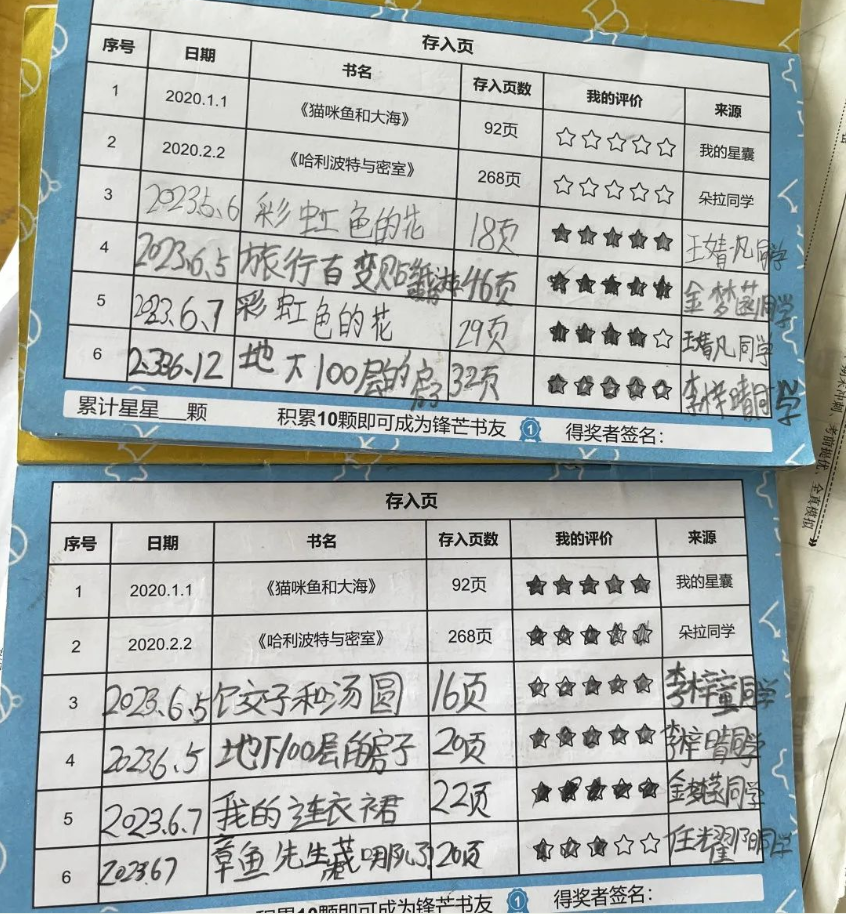 存入页
序号 日期 书名 存入页数 我的评价 来源
1 2020.1.1 《猫咪鱼和大海》 92页 我的星囊
2 2020.2.2 《哈利波特与密室》 268页 朵拉同学
3 2023.5.6 彩虹色的花 18页 王婧凡同学
4 2023.6.5 旅行百变贴纸 46页 金梦菡同学
5 2023.6.7 彩虹色的花 29页 王婧凡同学
6 12 地下100层的房子 32页 李梓晴同学
累计星星__颗 积累10颗即可成为锋芒书友 1 得奖者签名：
存入页
序号 日期 书名 存入页数 我的评价 来源
1 2020.1.1 《猫咪鱼和大海》 92页 我的星囊
2 2020.2.2 《哈利波特与密室》 268页 朵拉同学
3 2023.6.5 饺子和汤圆 16页 李梓童同学
4 20236.5 地下100层的房子 20页 李梓晴同学
5 2023.6.7 我的连衣裙 22页 同学
6 202367 章鱼先生藏哪儿了 20页 任耀阳同学
积累10颗即可成为锋芒书友 1 得奖者签名：